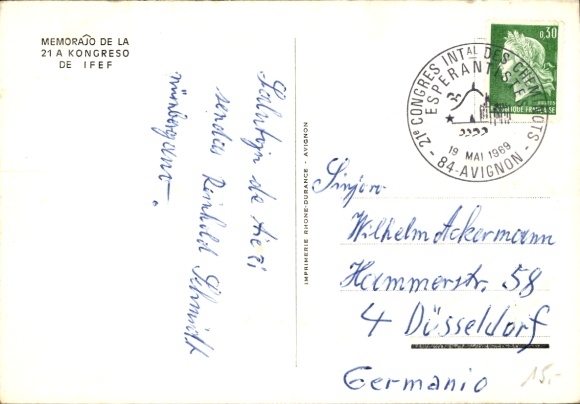 MEMORAĴO DE LA
21 A KONGRESO
DE IFEF
Salutojn de tie ĉi
sendas Reinhold Schmidt
nürnbergano.
IMPRIMERIE RHONE-DURANCE - AVIGNON
21e CONGRES INTAL DES CHEMINOTS
ESPERANTISTES
19 MAI 1969
- 84-AVIGNON -
0,30
REPUBLIQUE FRANÇAISE
Sinjoro
Wilhelm Ackermann
Hammerstr. 58
4 Düsseldorf
Germanio
15,-